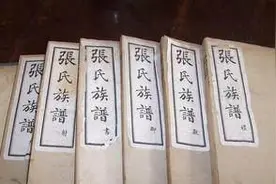 張氏族譜
張氏族譜
張氏族譜 御
張氏族譜 書
張氏族譜 射
張氏族譜